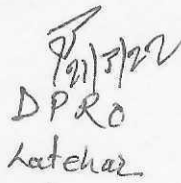 21/3/22
DPRO
Latehar